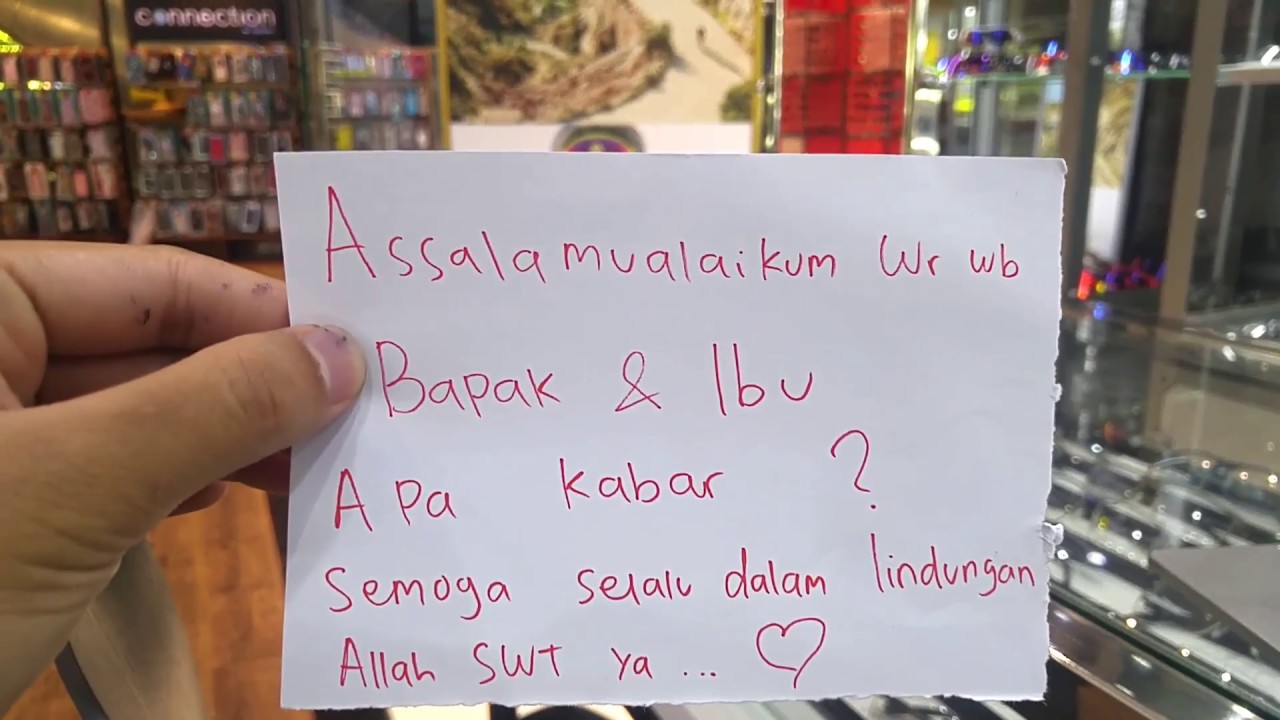 connection
Assalamualaikum Wr wb
Bapak & Ibu
Apa kabar ?
Semoga selalu dalam lindungan
Allah SWT ya ... ♡